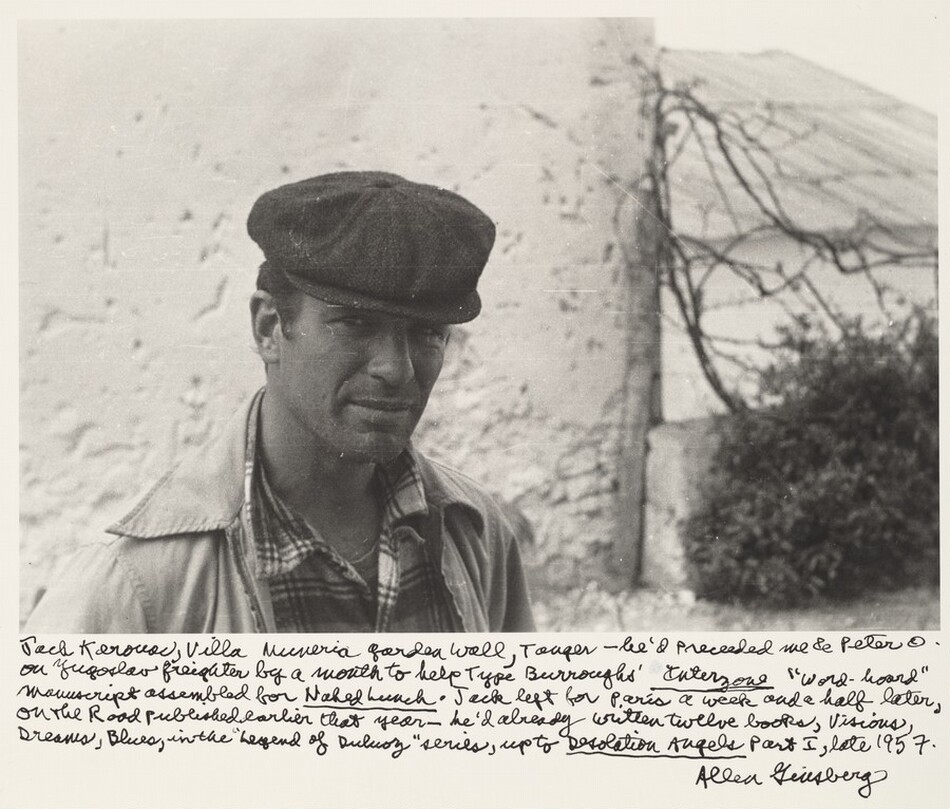 Jack Kerouac, Villa Muneria garden wall, Tanger — he'd preceded me & Peter O.
on Yugoslav freighter by a month to help Type Burroughs' Interzone "Word-hoard"
manuscript assembled for Naked Lunch. Jack left for Paris a week and a half later,
On the Road published earlier that year — he'd already written twelve books, Visions,
Dreams, Blues, in the "Legend of Duluoz" series, up to Desolation Angels Part I, late 1957.
Allen Ginsberg